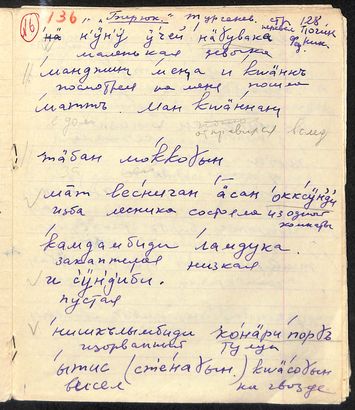 16 136 „Бирюк.“ Тургенев. стр 128
на нӱӈӱ ӱчей набувака
маленькая девочка
манджиң меңа и квӓннъ
посмотрела на меня пошла
ма̄ттъ. Ман квӓннаң
в дом отправился вслед
тӓбан моккоґын
ма̄т весничан а̄сан окксӱнди
изба лесника состояла из одной комнаты
камдамбиди ламдука.
закаптелая низкая
и сӱндиби.
пустая
нишкълымбиди кона̄ри порґъ
изорванный тулуп
ытис (сте́наґын.) квӓсоґын
висел на гвозде